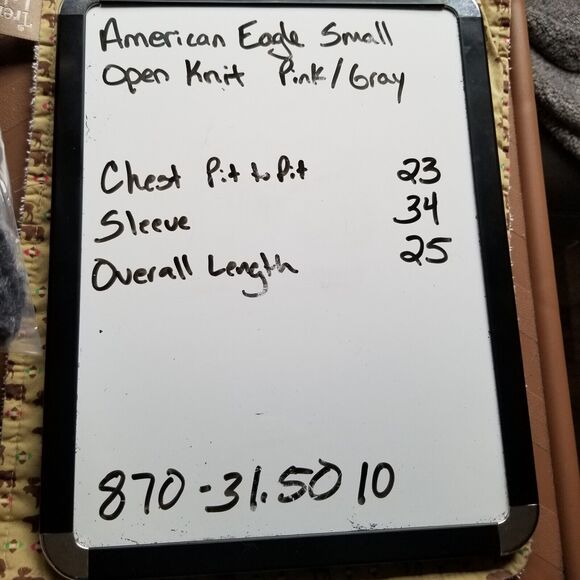 American Eagle Small
Open Knit Pink/Gray
Chest Pit to Pit 23
Sleeve 34
Overall Length 25
870-31.50 10